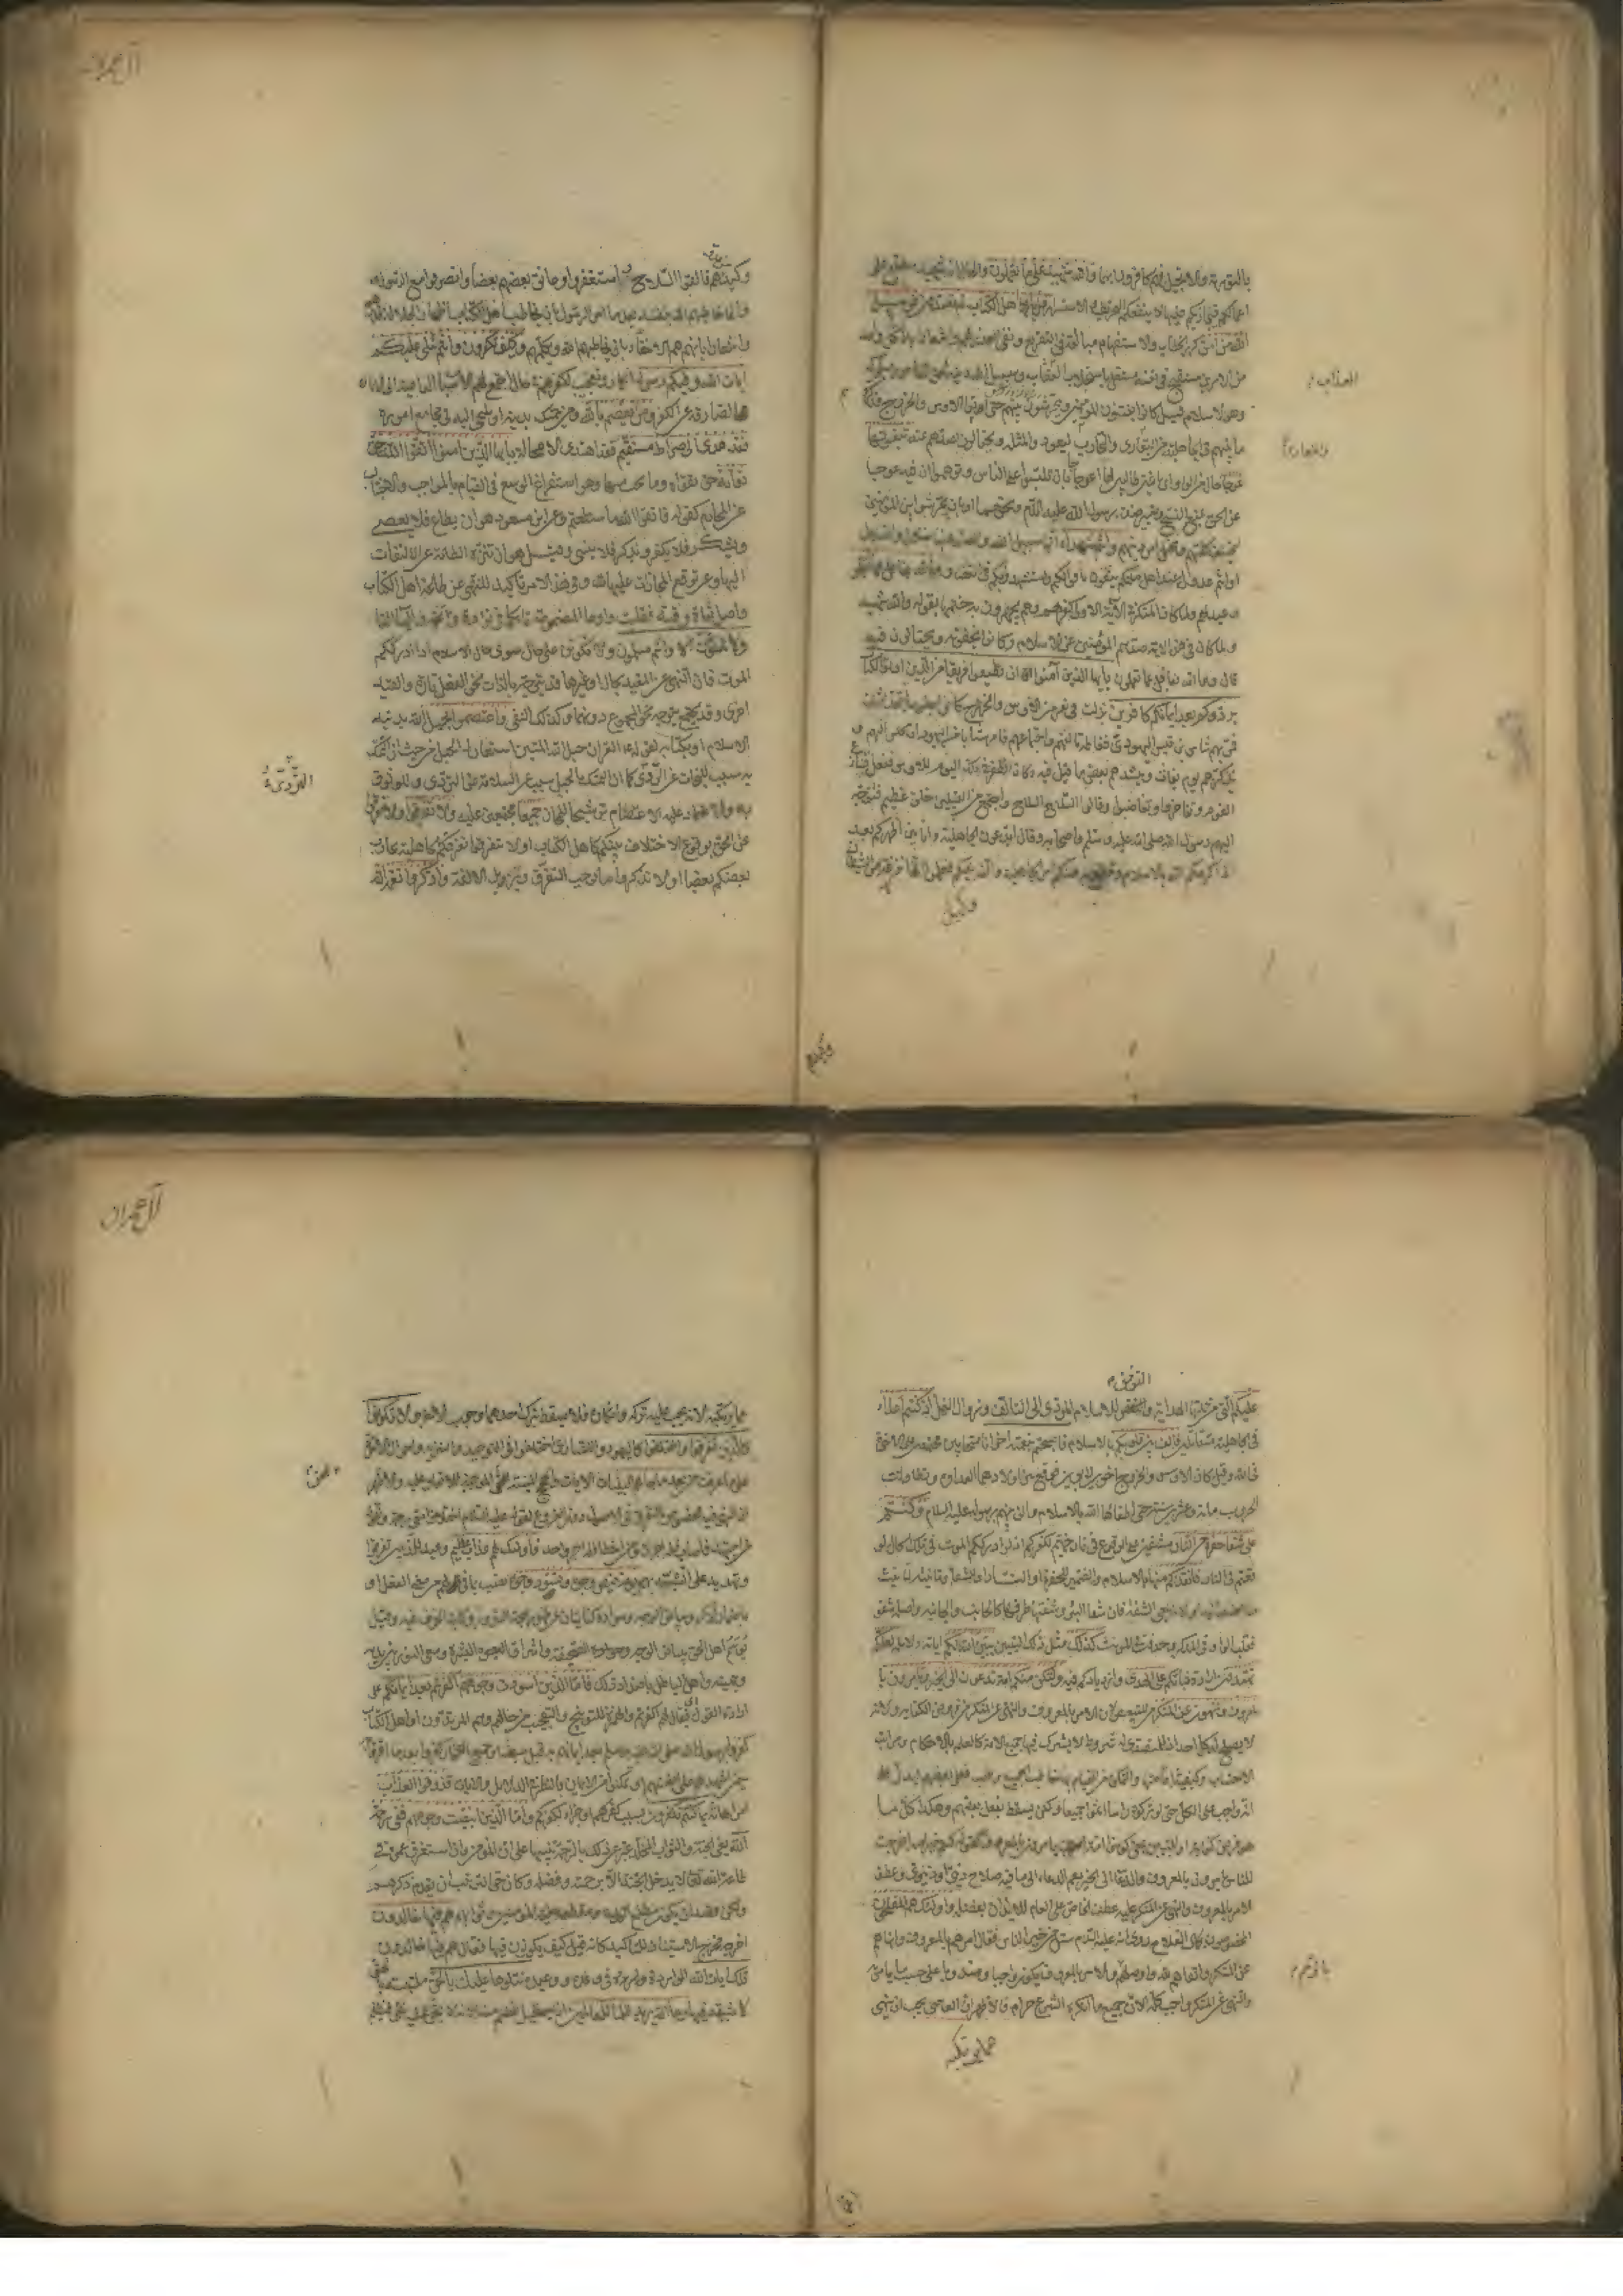 بالتورية والانجيل فهم كافرون بهما والله شهيد على ما تعملون والحال انه شهيد مطلع على
اعمالكم فيجازيكم عليها لا ينفعكم التحريف والاستسرار قل يا اهل الكتاب لم تصدون عن سبيل
الله من آمن كرر الخطاب والاستفهام مبالغة في التقريع ونفي العذر لهم واشعارا بان كل واحد
من الامرين مستقبح في نفسه مستقل باستجلاب العقاب وسبيل الله دينه الحق المأمور بسلوكه
العذاب
وهو الاسلام قيل كانوا يفتنون المؤمنين ويحرشون بينهم حتى اتوا الاوس والخزرج فذكروهم
ما بينهم في الجاهلية من التعادي والتحارب ليعودوا لمثله ويحتالون لصدهم عنه تبغونها
عوجا حال من الواو اي باغين طالبين لها اعوجاجا بان تلبسوا على الناس وتوهموا ان فيه عوجا
عن الحق بمنع النسخ وتغيير صفة رسول الله عليه السلام ونحوهما او بان تحرشوا بين المؤمنين
لتختلف كلمتهم ويختل امر دينهم وانتم شهداء انها سبيل الله والصد عنها ضلال واضلال
او انتم عدول عند اهل ملتكم يثقون باقوالكم ويستشهدونكم في القضايا وما الله بغافل عما تعملون
وعيد لهم ولما كان المنكر في الآية الاولى كفرهم وهم يجهرون به ختمها بقوله والله شهيد
ولما كان في هذه الآية صدهم المؤمنين عن الاسلام وكانوا يخفونه ويحتالون فيه
قال وما الله بغافل عما تعملون يا ايها الذين آمنوا ان تطيعوا فريقا من الذين اوتوا الكتاب
يردوكم بعد ايمانكم كافرين نزلت في نفر من الاوس والخزرج كانوا جلوسا يتحدثون
فمر بهم شاس بن قيس اليهودي فغاظه تألفهم واجتماعهم فامر شابا من اليهود ان يجلس اليهم و
يذكرهم يوم بعاث وينشدهم بعض ما قيل فيه وكان الظفر في ذلك اليوم للاوس ففعل فتنازع
القوم وتفاخروا وتغاضبوا وقالوا السلاح السلاح واجتمع من القبيلتين خلق عظيم فتوجه
اليهم رسول الله صلى الله عليه وسلم واصحابه وقال اتدعون الجاهلية وانا بين اظهركم بعد
اذ اكرمكم الله بالاسلام وقطع به عنكم امر الجاهلية والف بينكم فعلموا انها نزغة من الشيطان
وكيد
آل عمران
وكيد من عدوهم فالقوا السلاح واستغفروا وعانق بعضهم بعضا وانصرفوا مع الرسول
وانما خاطبهم الله بنفسه بعد ما امر الرسول بان يخاطب اهل الكتاب اظهارا لجلالة قدرهم
واشعارا بانهم هم الاحقاء بان يخاطبهم الله ويكلمهم وكيف تكفرون وانتم تتلى عليكم
آيات الله وفيكم رسوله انكار وتعجيب لكفرهم في حال اجتمع لهم الاسباب الداعية الى الايمان
الصارفة عن الكفر ومن يعتصم بالله ومن يتمسك بدينه او يلتجئ اليه في مجامع اموره
فقد هدي الى صراط مستقيم فقد اهتدى لا محالة يا ايها الذين آمنوا اتقوا الله حق
تقاته حق تقواه وما يجب منها وهو استفراغ الوسع في القيام بالمواجب والاجتناب
عن المحارم كقوله فاتقوا الله ما استطعتم وعن ابن مسعود هو ان يطاع فلا يعصى
ويشكر فلا يكفر ويذكر فلا ينسى وقيل هو ان تنزه الطاعة عن الالتفات
اليها وعن توقع المجازات عليها وفي هذا الامر تاكيد للنهي عن طاعة اهل الكتاب
واصل تقاة وقية فقلبت واوها المضمومة تاء كما في تؤدة وتخمة والياء الفا
ولا تموتن الا وانتم مسلمون ولا تكونن على حال سوى حال الاسلام اذا ادرككم
الموت فان النهي عن المقيد بحال او غيرها قد يتوجه بالذات نحو الفعل تارة والقيد
اخرى وقد يتوجه نحو المجموع دونهما وكذلك النفي واعتصموا بحبل الله بدينه
الاسلام او بكتابه لقوله القرآن حبل الله المتين استعار له الحبل من حيث ان التمسك
به سبب للنجاة عن الردى كما ان التمسك بالحبل سبب للسلامة عن التردي وللوثوق
التردي
به والاعتماد عليه الاعتصام ترشيحا للمجاز جميعا مجتمعين عليه ولا تفرقوا ولا تتفرقوا
عن الحق بوقوع الاختلاف بينكم كاهل الكتاب او لا تتفرقوا تفرقكم في الجاهلية يحارب
بعضكم بعضا او لا تذكروا ما يوجب التفرق ويزيل الالفة واذكروا نعمة الله
التوفيق
عليكم التي من جملتها الهداية للاسلام المؤدي الى التآلف وزوال الغل اذ كنتم اعداء
في الجاهلية متقاتلين فالف بين قلوبكم بالاسلام فاصبحتم بنعمته اخوانا متحابين مجتمعين على الاخوة
في الله وقيل كان الاوس والخزرج اخوين لابوين فوقع بين اولادهما العداوة وتطاولت
الحروب مائة وعشرين سنة حتى اطفأها الله بالاسلام والف بينهم برسوله عليه السلام وكنتم
على شفا حفرة من النار مشفين على الوقوع في نار جهنم لكفركم اذ لو ادرككم الموت في تلك الحال لو
قعتم في النار فانقذكم منها بالاسلام والضمير للحفرة او النار او للشفا وتأنيثه لتأنيث
ما اضيف اليه او لانه بمعنى الشفة فان شفا البئر وشفتها طرفها كالجانب والجانبة واصله شفو
فقلبت الواو في المذكر وحذفت في المؤنث كذلك مثل ذلك التبيين يبين الله لكم آياته دلائله لعلكم
تهتدون ارادة ثباتكم على الهدى وازديادكم فيه ولتكن منكم امة يدعون الى الخير ويأمرون با
لمعروف وينهون عن المنكر من للتبعيض لان الامر بالمعروف والنهي عن المنكر من فروض الكفاية ولانه
لا يصلح له كل احد اذ للمتصدي له شروط لا يشترك فيها جميع الامة كالعلم بالاحكام ومراتب
الاحتساب وكيفية اقامتها والتمكن من القيام بها خاطب الجميع وطلب فعل بعضهم ليدل على
انه واجب على الكل حتى لو تركوه راسا اثموا جميعا ولكن يسقط بفعل بعضهم وهكذا كل ما
هو فرض كفاية او للتبيين بمعنى وكونوا امة يأمرون بالمعروف كقوله كنتم خير امة اخرجت
للناس تأمرون بالمعروف والدعاء الى الخير يعم الدعاء الى ما فيه صلاح ديني او دنيوي وعطف
الامر بالمعروف والنهي عن المنكر عليه عطف الخاص على العام للايذان بفضله واولئك هم المفلحون
المخصوصون بكمال الفلاح روي انه عليه السلام سئل من خير الناس فقال آمرهم بالمعروف وانهاهم
عن المنكر واتقاهم لله واوصلهم والامر بالمعروف يكون واجبا ومندوبا على حسب ما يأمر به
والنهي عن المنكر واجب كله لان جميع ما انكره الشرع حرام والاظهر ان العاصي يجب ان ينهى
عما يرتكبه
آل عمران
عما يرتكبه لانه يجب عليه تركه وانكاره فلا يسقط بترك احدهما وجوب الآخر ولا تكونوا
كالذين تفرقوا واختلفوا كاليهود والنصارى اختلفوا في التوحيد والتنزيه واحوال الآخرة
على ما عرفت من بعد ما جاءهم البينات الآيات والحجج المبينة للحق الموجبة للاتفاق عليه والاظهر
ان النهي فيه مخصوص بالتفرق في الاصول دون الفروع لقوله عليه السلام اختلاف امتي رحمة ولقوله
من اجتهد فاصاب فله اجران ومن اخطأ فله اجر واحد واولئك لهم عذاب عظيم وعيد للذين تفرقوا
وتهديد على التشبه بهم يوم تبيض وجوه وتسود وجوه نصب بما في لهم من معنى الفعل او
باضمار اذكر وبياض الوجه وسواده كنايتان عن ظهور بهجة السرور وكآبة الخوف فيه وقيل
يوسم اهل الحق ببياض الوجه والصحيفة واشراق البشرة وسعي النور بين يديه
وبيمينه واهل الباطل باضداد ذلك فاما الذين اسودت وجوههم اكفرتم بعد ايمانكم على
ارادة القول اي فيقال لهم اكفرتم والهمزة للتوبيخ والتعجيب من حالهم وهم المرتدون او اهل الكتاب
كفروا برسول الله صلى الله عليه وسلم بعد ايمانهم به قبل مبعثه او جميع الكفار كفروا بعد ما اقروا
حين اشهدهم على انفسهم او تمكنوا من الايمان بالنظر في الدلائل والآيات فذوقوا العذاب
امر اهانة بما كنتم تكفرون بسبب كفركم او جزاء لكفركم واما الذين ابيضت وجوههم ففي رحمة
الله يعني الجنة والثواب المخلد عبر عن ذلك بالرحمة تنبيها على ان المؤمن وان استغرق عمره في
طاعة الله تعالى لا يدخل الجنة الا برحمته وفضله وكان حق الترتيب ان يقدم ذكرهم
ولكن قصد ان يكون مطلع الكلام ومقطعه حلية المؤمنين وثوابهم هم فيها خالدون
اخرجه مخرج الاستيناف للتاكيد كانه قيل كيف يكونون فيها فقال هم فيها خالدون
تلك آيات الله الواردة في وعده ووعيده نتلوها عليك بالحق ملتبسة بالحق
لا شبهة فيها وما الله يريد ظلما للعالمين اذ يستحيل الظلم منه لانه لا يحق عليه شيء فيظلم